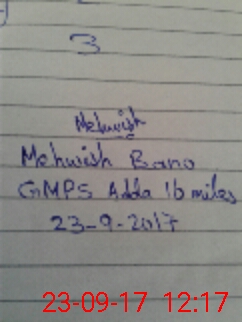 3
Mehwish
Mehwish Bano
GMPS Adda 16 miles
23-9-2017
23-09-17 12:17